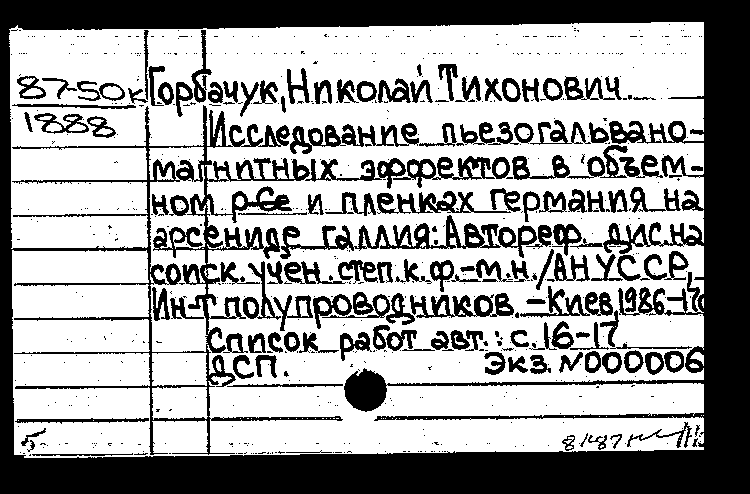 87-50к Горбачук, Николай Тихонович.
1888 Исследование пьезогальвано-
магнитных эффектов в объем-
ном p-Ge и пленках германия на
арсениде галлия: Автореф. дис. на
соиск. учен. степ. к. ф.-м. н. / АН УССР,
Ин-т полупроводников. – Киев, 1986. – 17с
Список работ авт.: с. 16-17.
ДСП. Экз. N000006
5